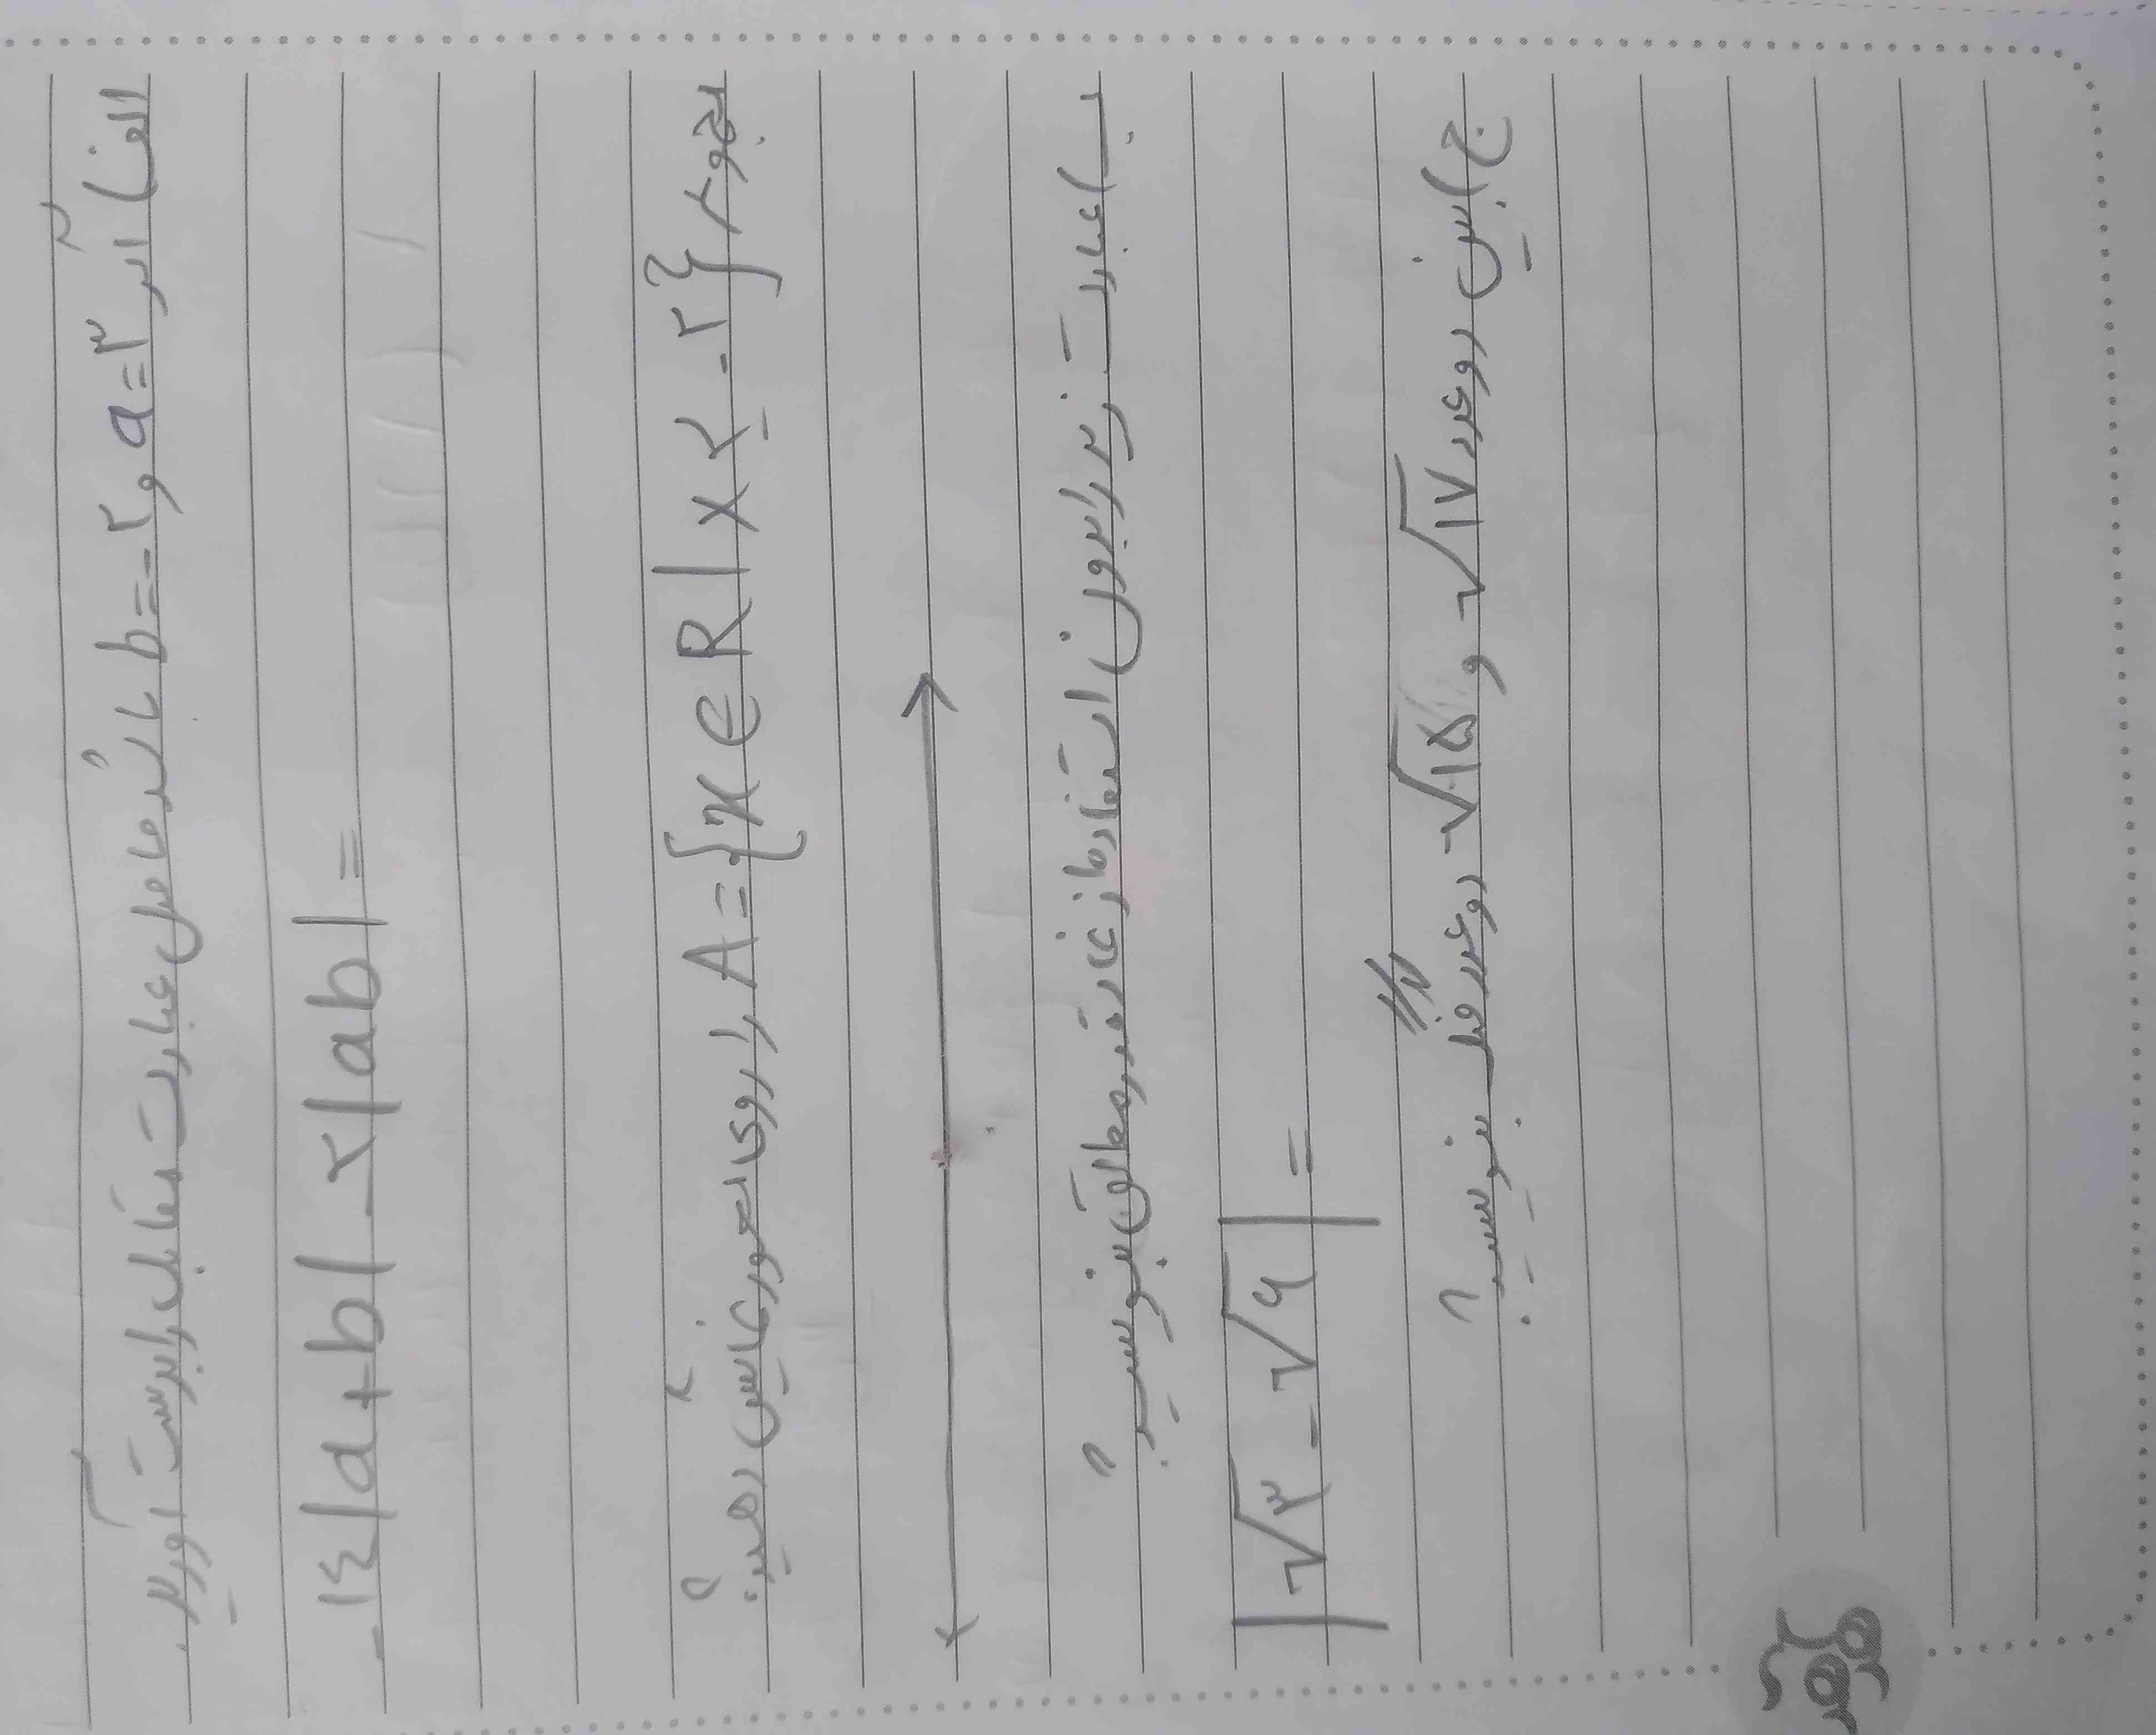 الف) اگر a=۳ و b=-۲ باشد حاصل عبارت مقابل را بدست آورید.
-۱۴|a+b|-۲|ab|=
مجموعه A={x∈R|x<-۲} را روی محور نمایش دهید؟
ب) عبارت زیر را بدون استفاده از نماد قدر مطلق بنویسید؟
|√۳-√۶|=
ج) بین دو عدد √۱۷ و √۱۵ دو عدد گنگ بنویسید؟